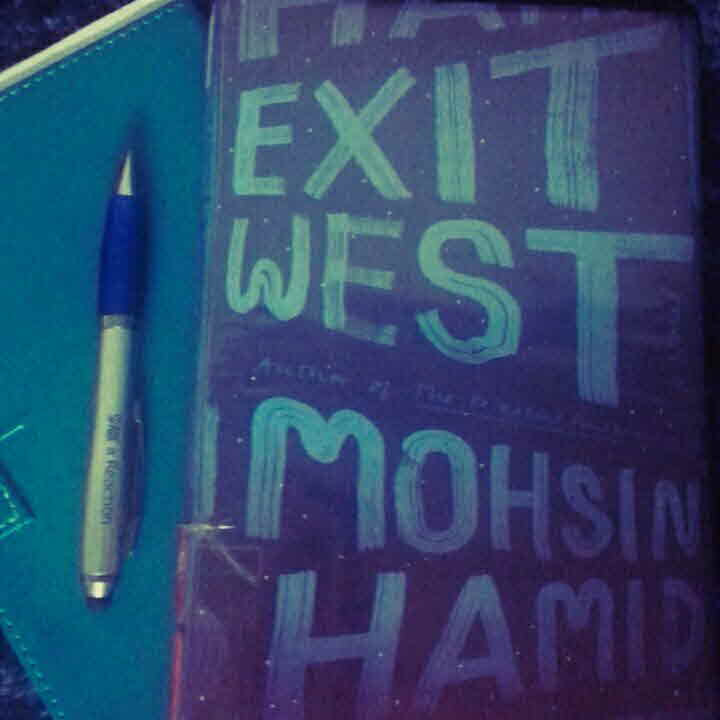 HAM
EXIT
WEST
Author of The
MOHSIN
HAMID